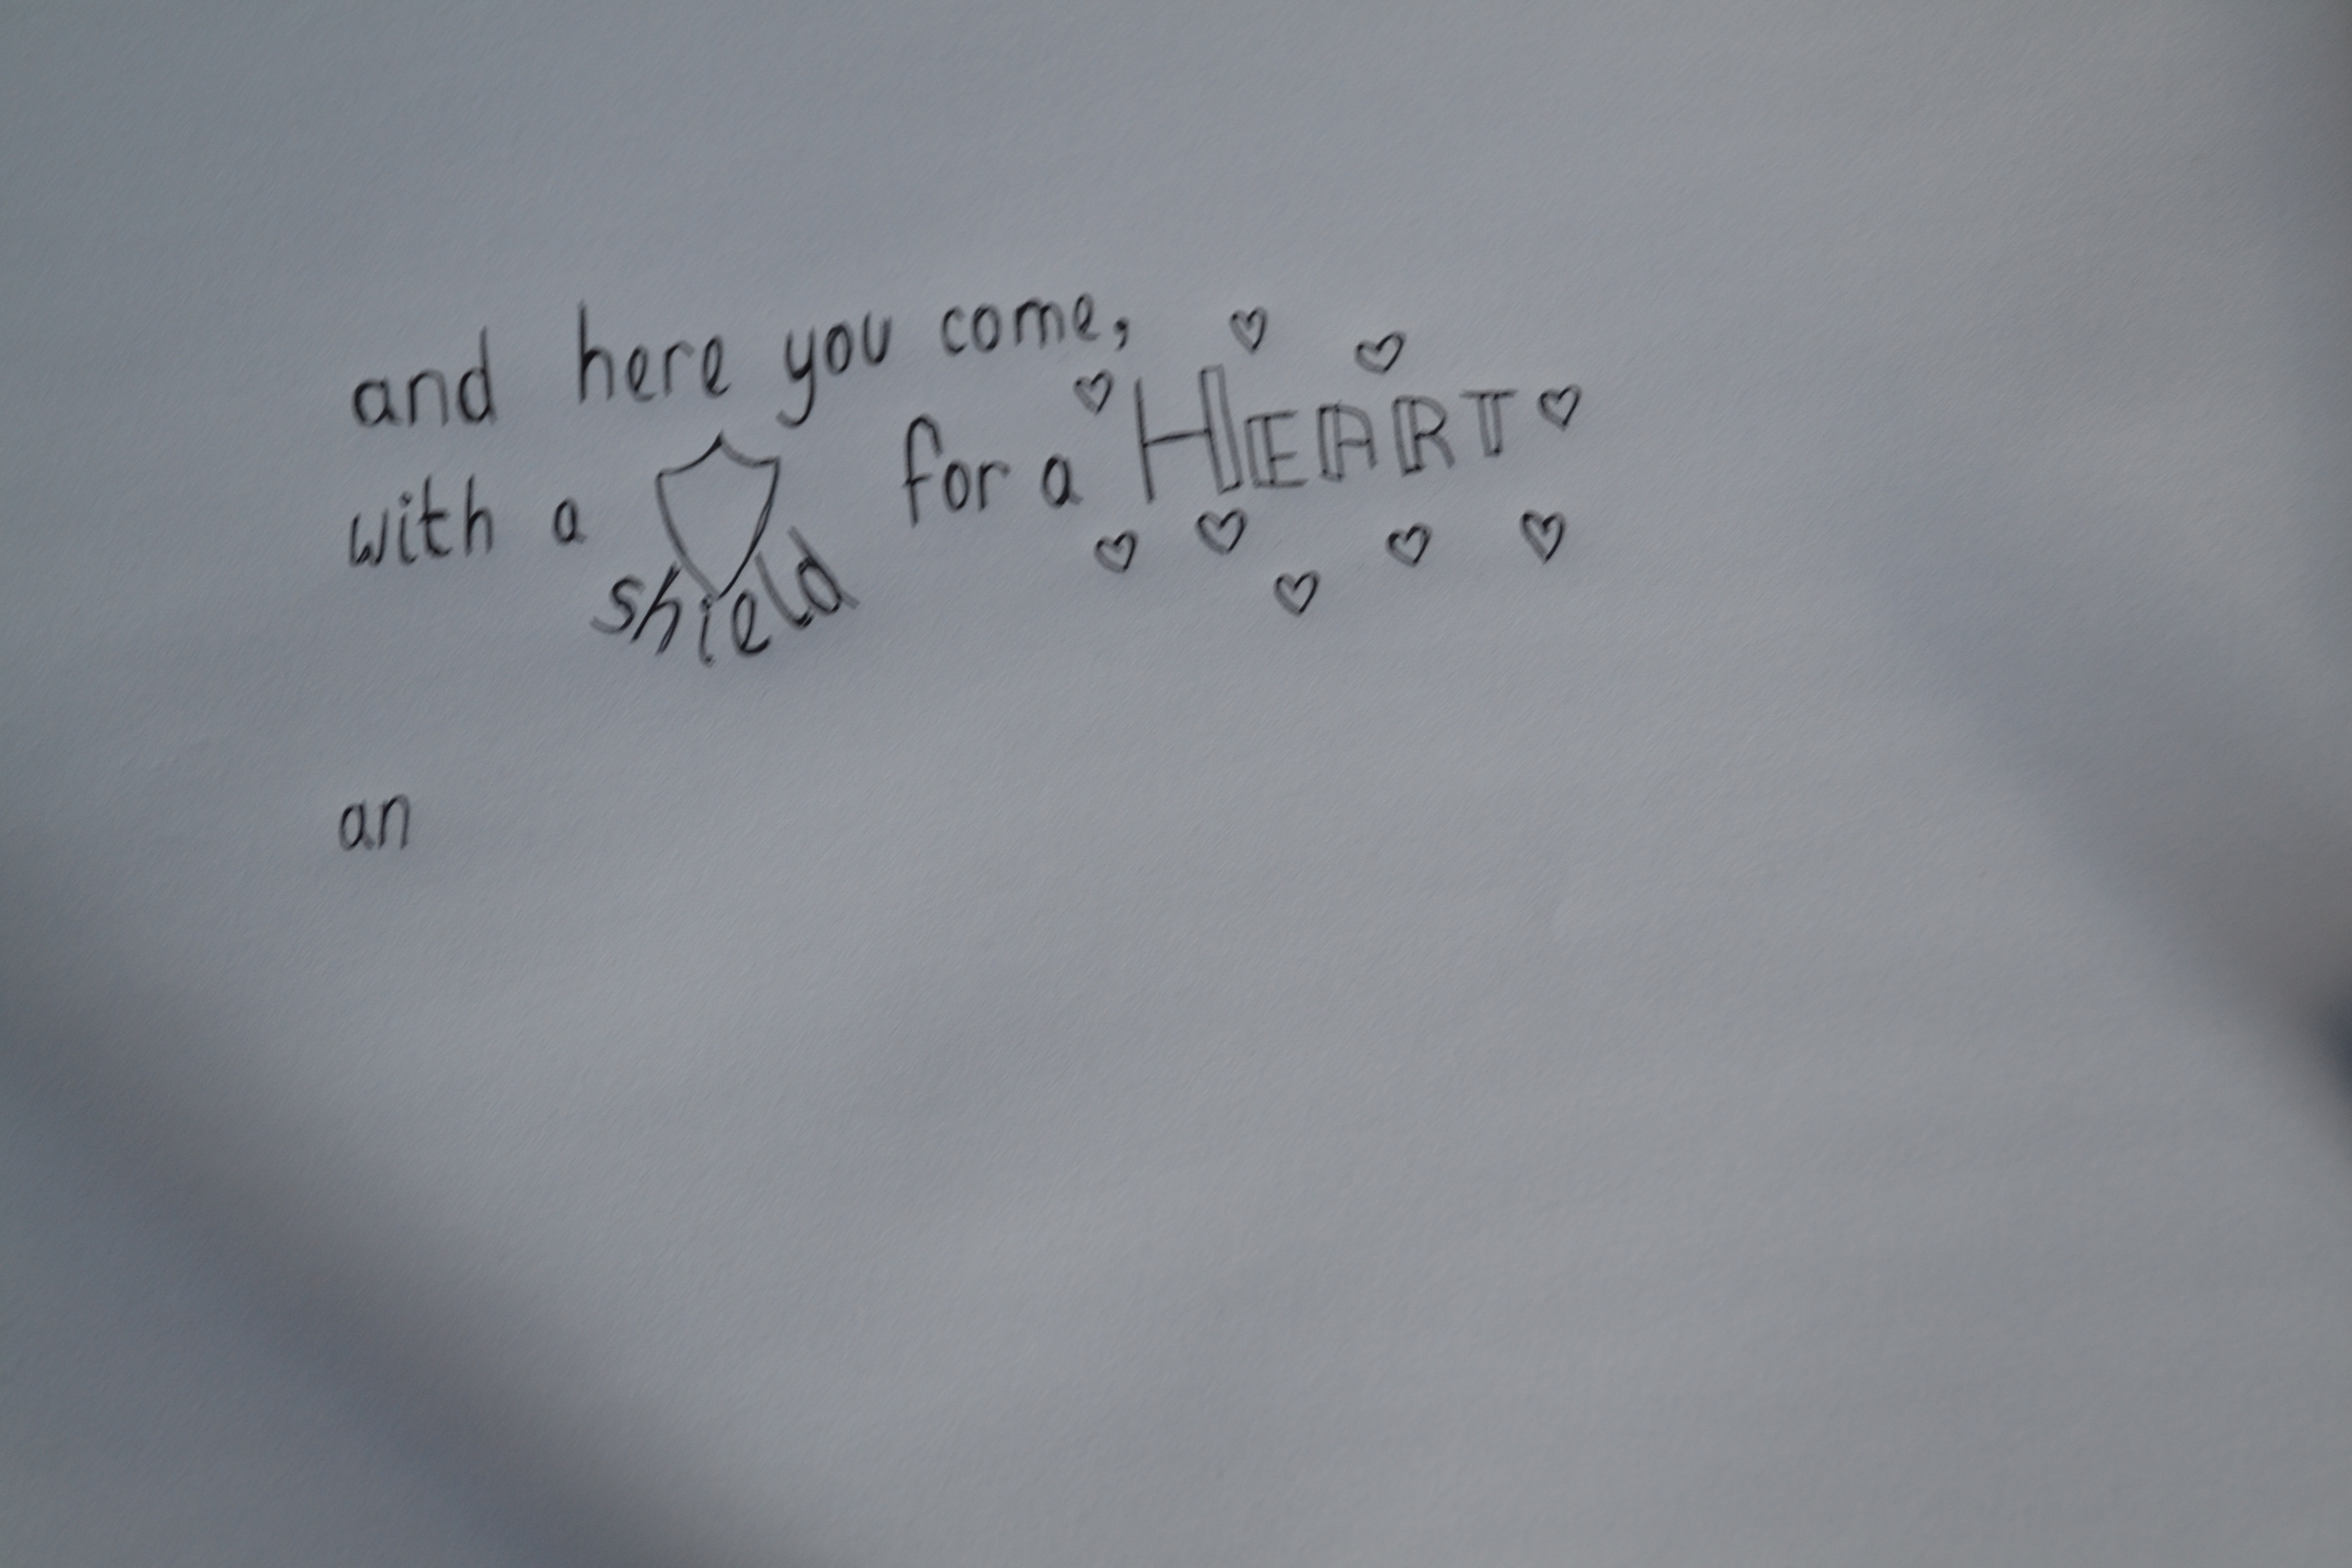 and here you come,
with a shield for a HEART
an